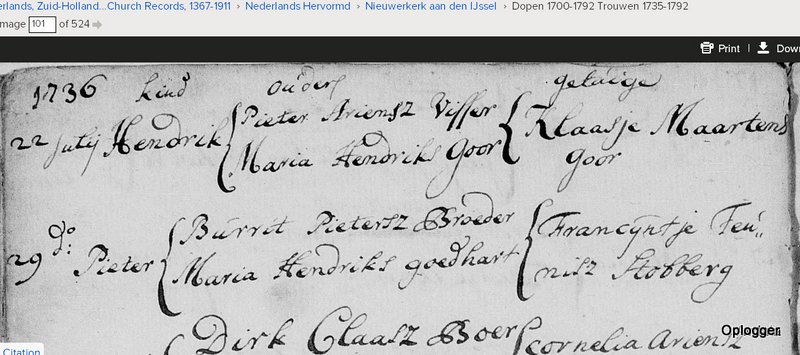 erlands, Zuid-Holland...Church Records, 1367-1911 › Nederlands Hervormd › Nieuwerkerk aan den IJssel › Dopen 1700-1792 Trouwen 1735-1792
mage 101 of 524
Print | Down
1736 kind ouders getuige
22 July Hendrik Pieter Ariensz Visser Klaasje Maartens
Maria Hendriks Goor Goor
29 do: Pieter Burrit Pietersz Broeder Francÿntje Teu„
Maria Hendriks goedhart nisz Stobberg
Dirk Claasz Boer cornelia Ariensz
Oplogger
Citation